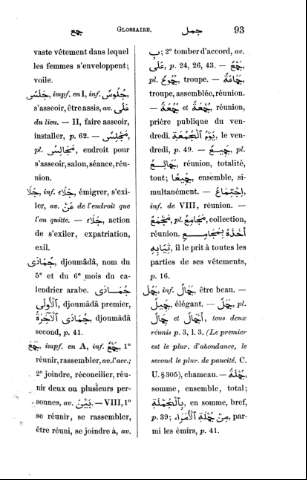 جمع GLOSSAIRE. جمل 93
vaste vêtement dans lequel
les femmes s'enveloppent;
voile.
جلس, impf. en I, inf. جلوس,
s'asseoir, être assis, av. على
du lieu. — II, faire asseoir,
installer, p. 62. — مجلس,
pl. مجالس, endroit pour
s'asseoir, salon, séance, réu-
nion.
جلا, inf. جلاء, émigrer, s'exi-
ler, av. من de l'endroit que
l'on quitte. — جلاء, action
de s'exiler, expatriation,
exil.
جمادى, djoumâdâ, nom du
5e et du 6e mois du ca-
lendrier arabe. جمادى
الأولى, djoumâdâ premier,
جمادى الآخرة djoumâdâ
second, p. 41.
جمع impf. en A, inf. جمع, 1°
réunir, rassembler, av. l'acc.;
2° joindre, réconcilier, réu-
nir deux ou plusieurs per-
sonnes, av. بين. — VIII, 1°
se réunir, se rassembler,
être réuni, se joindre à, av.
ب; 2° tomber d'accord, av.
على, p. 24, 26, 43. — جمع,
pl. جموع, troupe. — جماعة,
troupe, assemblée, réunion.
— جمعة et جمعة, réunion,
prière publique du ven-
dredi. يوم الجمعة, le ven-
dredi, p. 49. — جميع, pl.
réunion, totalité,
tout; جميعا, ensemble, si-
multanément. — اجتماع,
inf. de VIII, réunion. —
مجمع, pl. مجامع, collection,
réunion. أخذه بمجامع
ثيابه, il le prit à toutes les
parties de ses vêtements,
p. 16.
جمل, inf. جمال, être beau. —
جميل, élégant. — جمل, pl.
جمال et أجمال, tous deux
réunis p. 3, l. 3. (Le premier
est le plur. d'abondance, le
second le plur. de paucité. C.
U. § 305), chameau. — جملة,
somme, ensemble, total;
بالجملة, en somme, bref,
p. 39; من جملة الأمراء, par-
mi les émirs, p. 41.